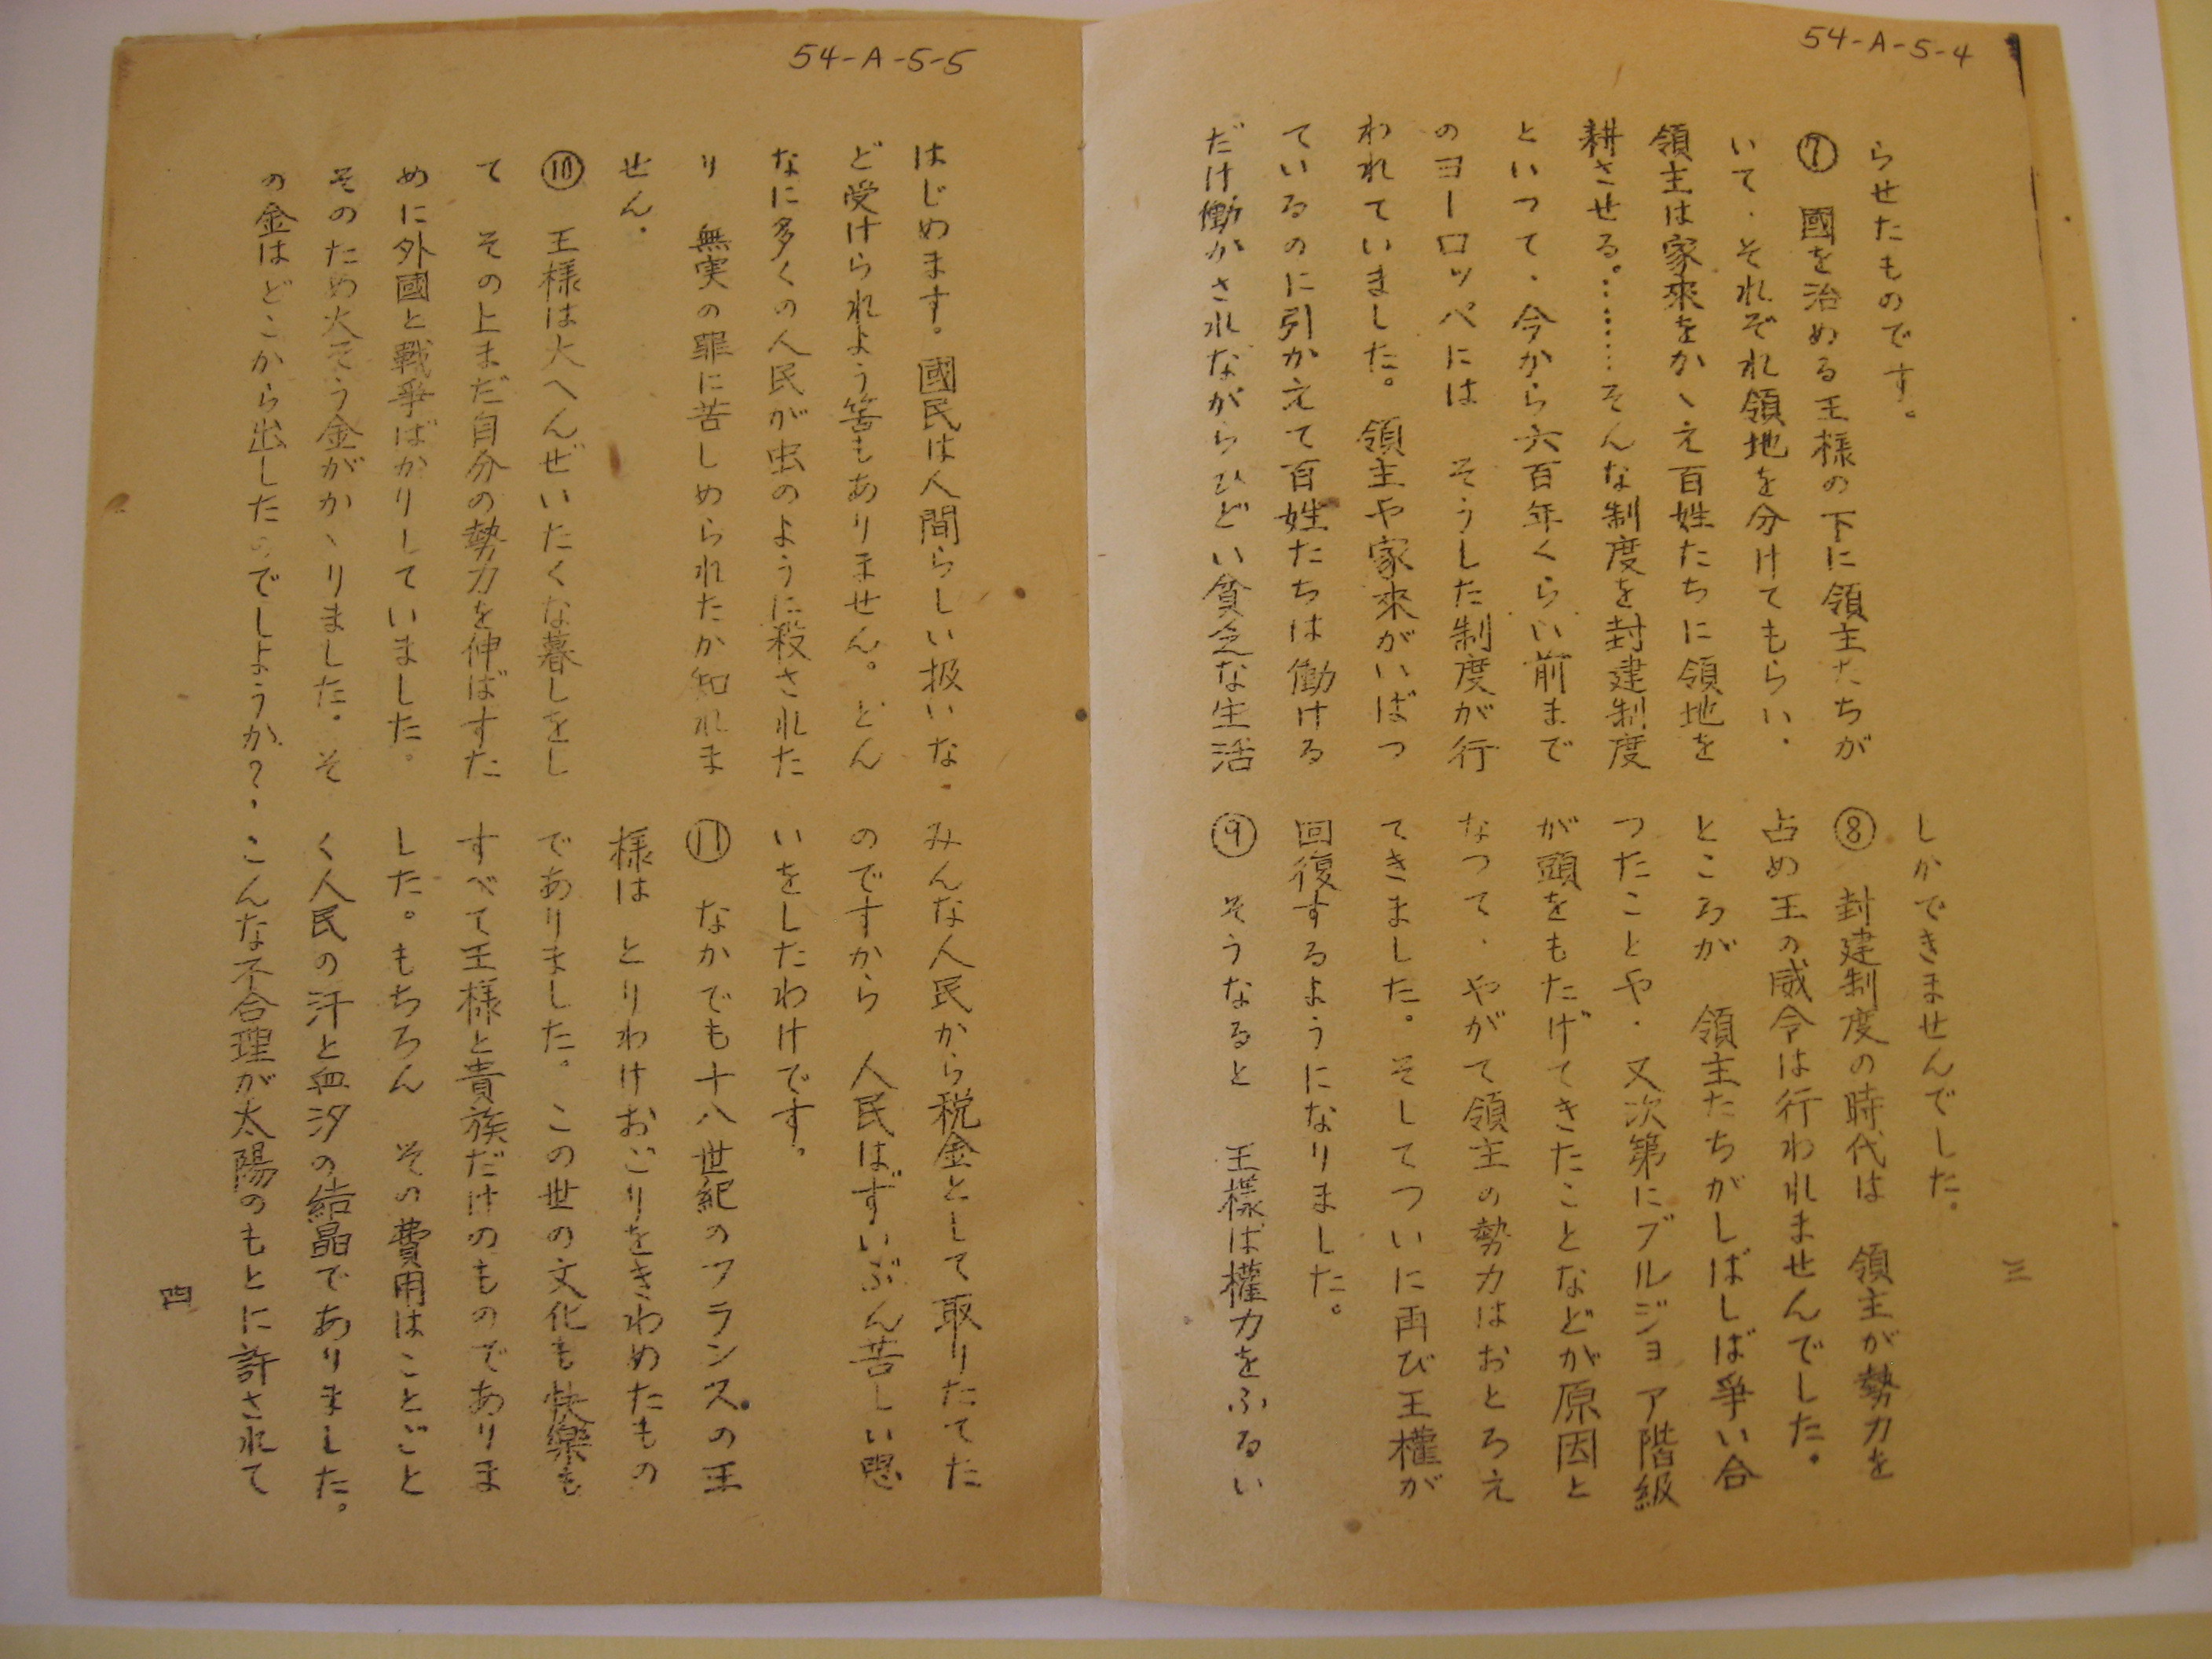 54-A-5-4
らせたものです。
⑦ 國を治める王様の下に領主たちが
いて、それぞれ領地を分けてもらい、
領主は家來をかゝえ百姓たちに領地を
耕させる。………そんな制度を封建制度
といつて、今から六百年くらい前まで
のヨーロッペには そうした制度が行
われていました。領主や家來がいばつ
ているのに引かえて百姓たちは働ける
だけ働かされながらひどい貧乏な生活
しかできませんでした。
⑧ 封建制度の時代は 領主が勢力を
占め王の威令は行われませんでした。
ところが 領主たちがしばしば爭い合
つたことや、又次第にブルジョア階級
が頭をもたげてきたことなどが原因と
なつて、やがて領主の勢力はおとろえ
てきました。そしてついに再び王權が
回復するようになりました。
⑨ そうなると 王様は權力をふるい
三
54-A-5-5
はじめます。國民は人間らしい扱いな
ど受けられよう筈もありません。どん
なに多くの人民が虫のように殺された
り 無実の罪に苦しめられたか知れま
せん。
⑩ 王様は大へんぜいたくな暮しをし
て その上まだ自分の勢力を伸ばすた
めに外國と戰爭ばかりしていました。
そのため大そう金がかゝりました。そ
の金はどこから出したのでしようか?、
みんな人民から税金として取りたてた
のですから 人民はずいぶん苦しい思
いをしたわけです。
⑪ なかでも十八世紀のフランスの王
様は とりわけおごりをきわめたもの
でありました。この世の文化も快樂も
すべて王様と貴族だけのものでありま
した。もちろん その費用はことごと
く人民の汗と血汐の結晶でありました。
こんな不合理が太陽のもとに許されて
四